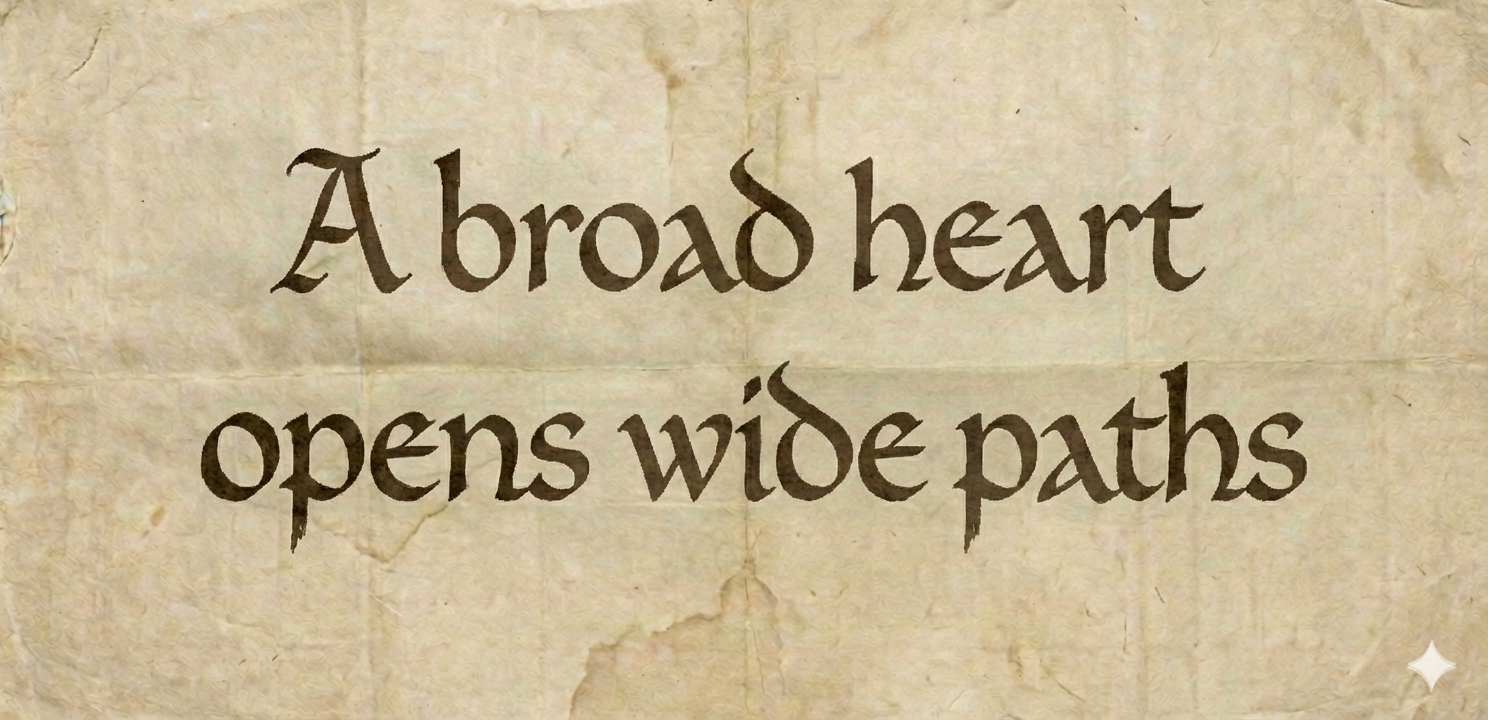 A broad heart
opens wide paths